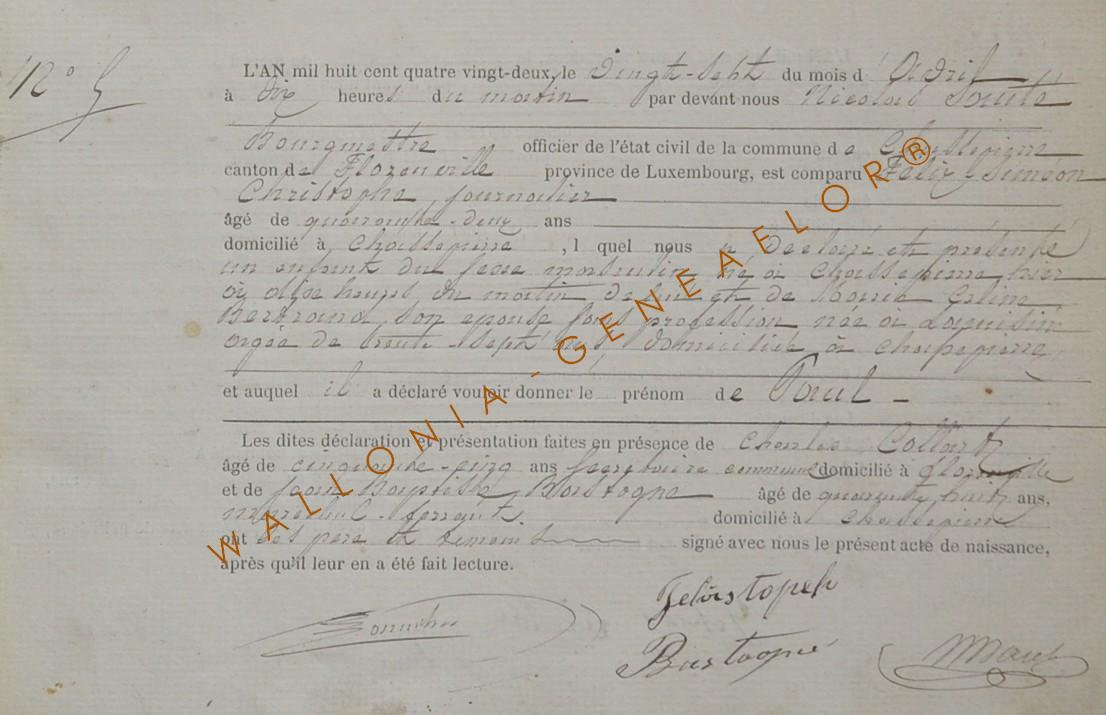 N° 5
L'AN mil huit cent quatre vingt-deux, le Vingt-Sept du mois d'Avril
à dix heures du matin par devant nous Nicolas
Bourgmestre officier de l'état civil de la commune de Chassepierre
canton de Florenville province de Luxembourg, est comparu Felix Siméon
Christophe, journalier
âgé de quarante-deux ans
domicilié à Chassepierre, lequel nous a déclaré et présenté
un enfant du sexe masculin né à Chassepierre hier
à onze heures du matin de lui et de Marie Celine
Bertrand son epouse sans profession née à
agée de trente-sept ans, domiciliée à Chassepierre
et auquel il a déclaré vouloir donner le prénom de Paul
Les dites déclaration et présentation faites en présence de Charles Collart
âgé de cinquante-cinq ans Secretaire communal domicilié à Florenville
et de Jean Baptiste Bastogne âgé de quarante huit ans,
maréchal-ferrant domicilié à Chassepierre
ont les pere et temoins signé avec nous le présent acte de naissance,
après qu'il leur en a été fait lecture.
WALLONIA-GENEAELOR®